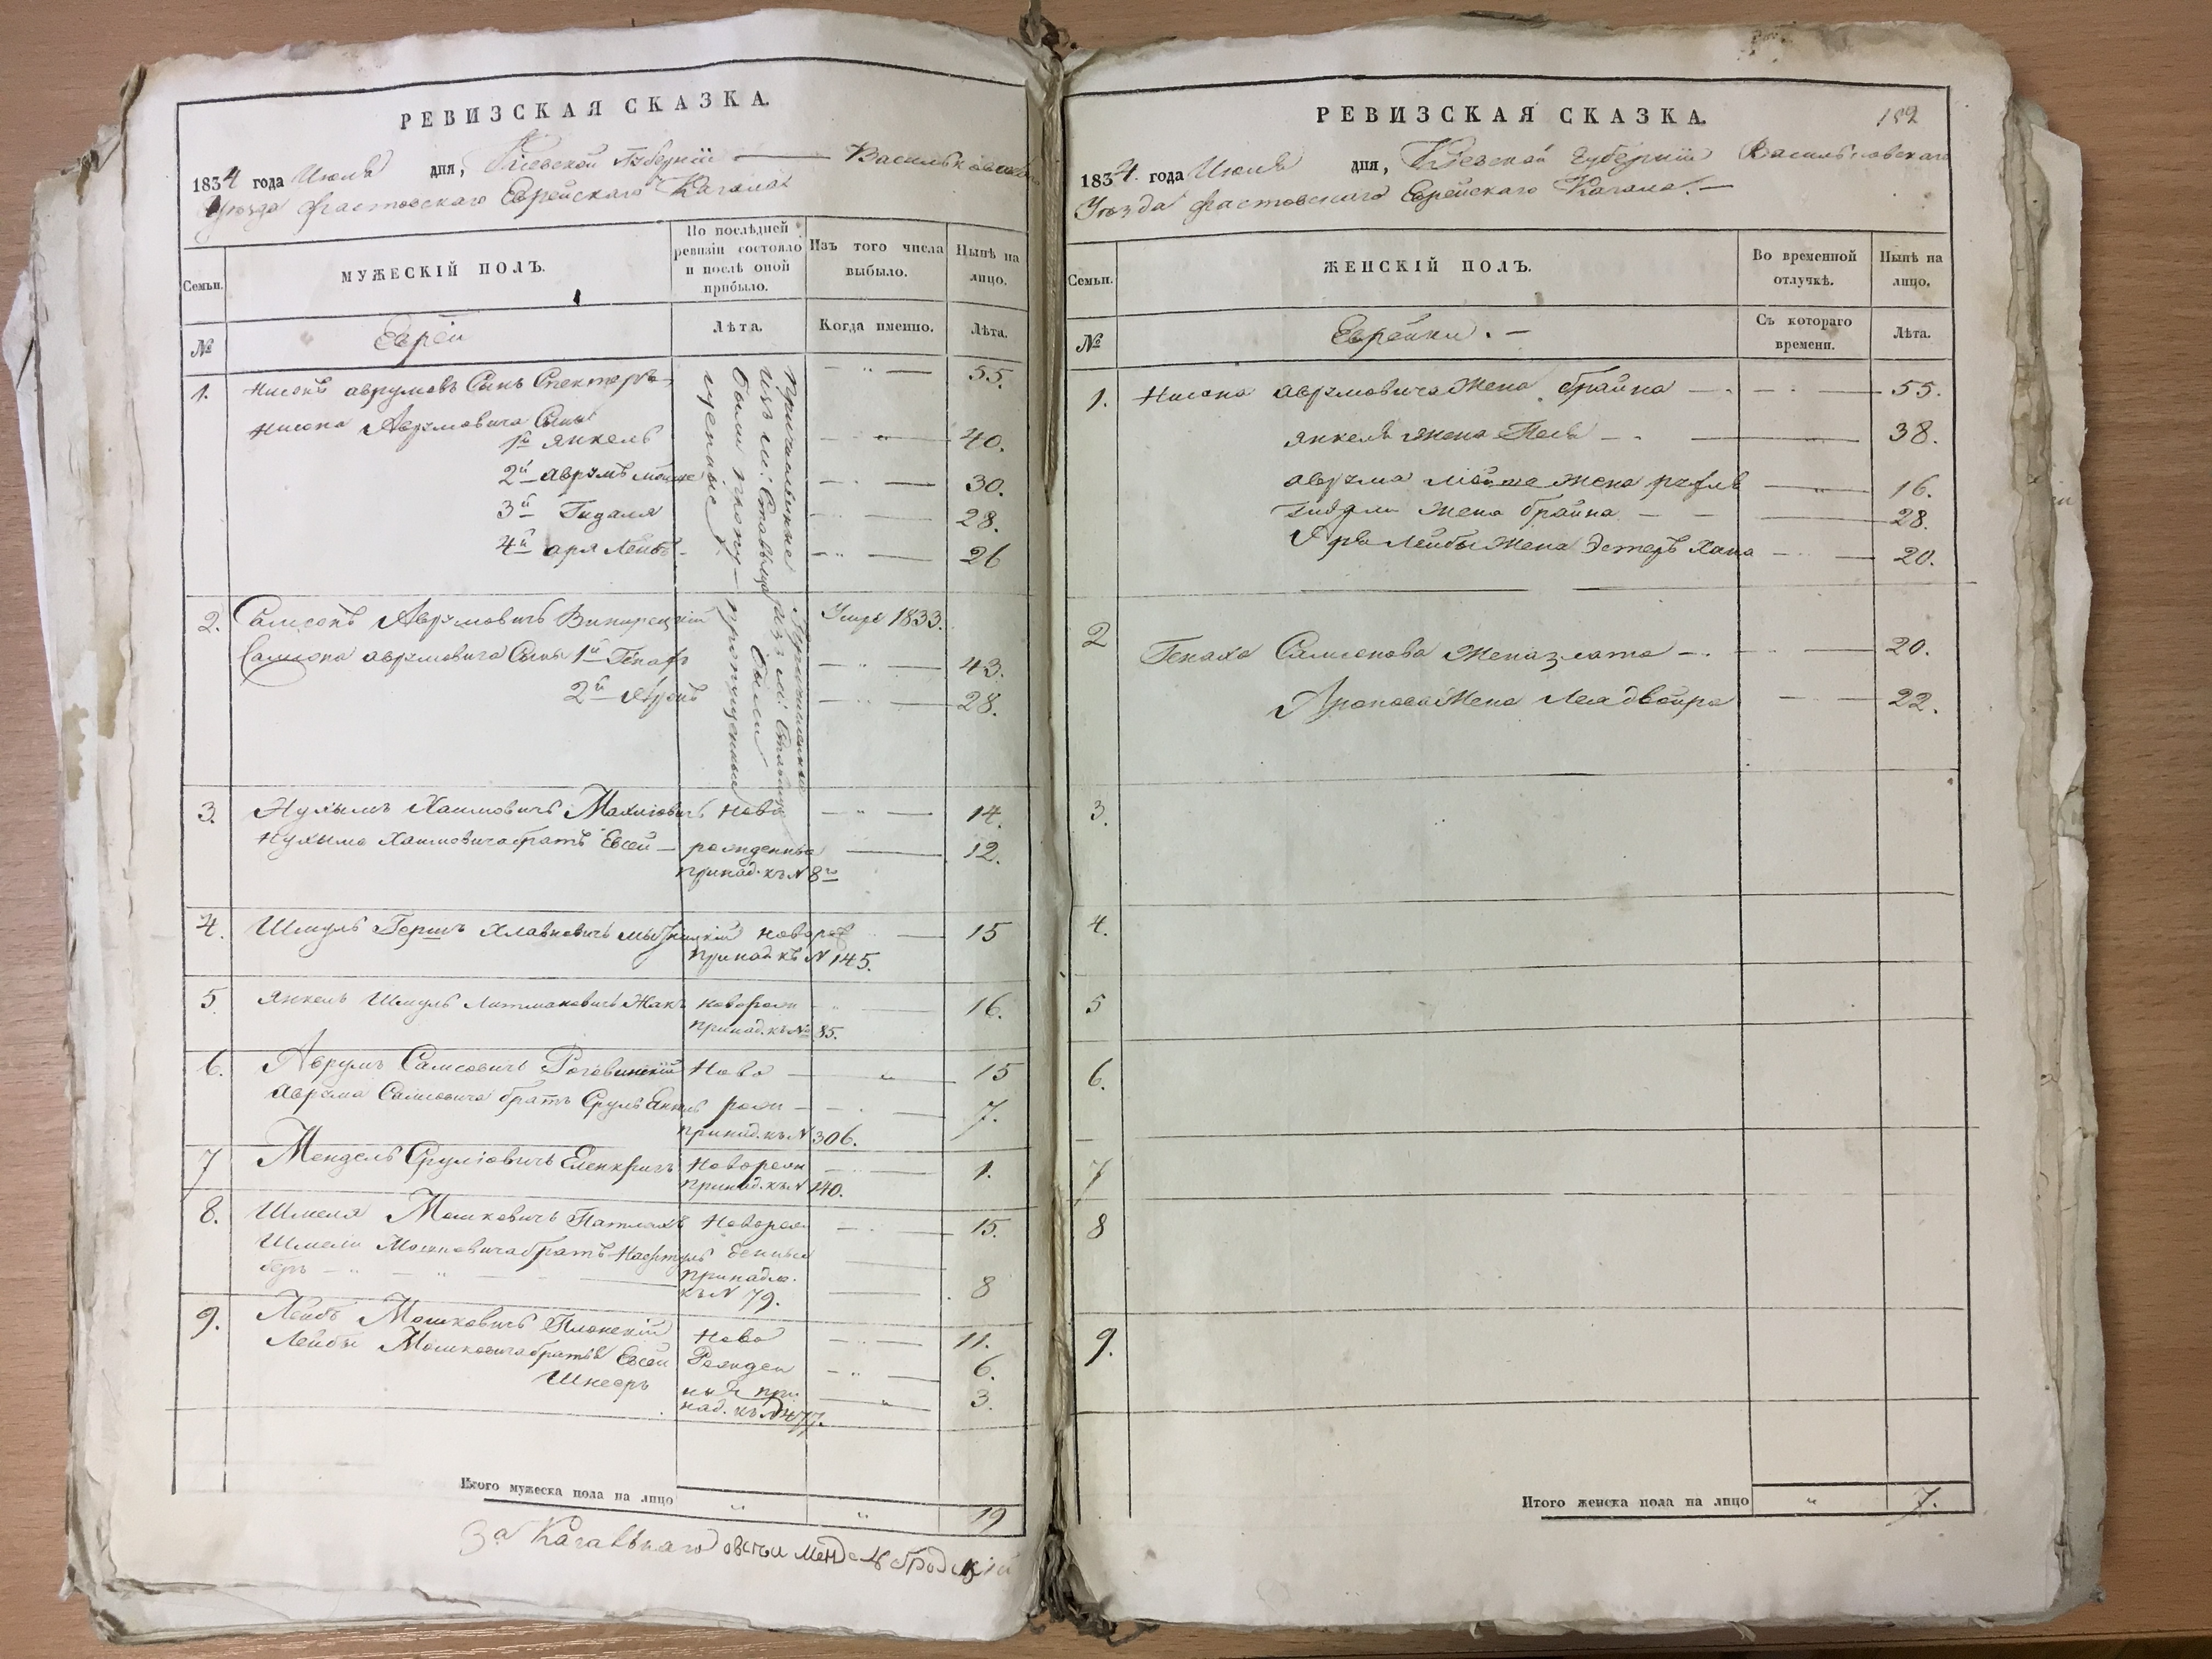 РЕВИЗСКАЯ СКАЗКА.
1834 года Июля дня, Кіевской Губерніи Васильковскаго
Уѣзда Фастовскаго Еврейскаго Кагала
Семьи.
МУЖЕСКІЙ ПОЛЪ.
По послѣдней ревизіи состояло и послѣ оной прибыло.
Изъ того числа выбыло.
Нынѣ на лицо.
№
Евреи
Лѣта.
Когда именно.
Лѣта.
1. Нисонъ Аврумовъ Сынъ Спекторъ 55.
Нисона Аврумовича Сыны
1й Янкель 40.
2й Аврумъ Мошке 30.
3й Гидаля 28.
4й Аря Лейбъ 26
Причисленные
изъ м:
были пропу-
щенные
2. Самсонъ Аврумовичъ Умре 1833.
Самсона Аврумовича Сынъ 1й Генахъ 43.
2й Аронъ 28.
Причисленные
изъ м:
были
пропущенныи
3. Нухымъ Хаимовичъ Ново 14.
Нухыма Хаимовича братъ Евсей рожденные 12.
принад. къ № 8й
4. Шмуль Гершъ Новорож 15
принад къ № 145.
5 Янкель Шмуль Литмановичъ Жакъ Новорож 16.
принад. къ № 85.
6. Аврумъ Самсовичъ Роговинскій Ново 15
Аврума Самсовича братъ Сруль рож 7.
принад. къ № 306.
7 Мендель Сруліовичъ Новорож 1.
принад. къ № 140.
8. Шмеля Мошковичъ Новорож 15.
Шмели Мошковича братъ Нафтуль денные
беръ принадле. 8
къ № 79.
9. Лейбъ Мошковичъ Плонскій Ново 11.
Лейбы Мошковича братья Евсей Рожден 6.
Шнееръ ныя при 3.
над. къ № 477.
Итого мужеска пола на лицо 19
За Кагальнаго Мендель Бродскій
РЕВИЗСКАЯ СКАЗКА.
182
1834. года Июля дня, Кіевской Губерніи Васильковскаго
Уѣзда Фастовскаго Еврейскаго Кагала. —
Семьи.
ЖЕНСКІЙ ПОЛЪ.
Во временной отлучкѣ.
Нынѣ на лицо.
№
Еврейки. —
Съ котораго времени.
Лѣта.
1. Нисона Аврумовича Жена Брайна 55.
Янкеля Жена Песя 38.
Аврума Мошке Жена Рухля 16.
Гидали Жена Брайна 28.
Аря Лейбы Жена Эстеръ Хана 20.
2 Генаха Самсонова Жена Злата 20.
Аронова Жена Лея Двойра 22.
3.
4.
5
6.
7
8
9.
Итого женска пола на лицо 7.